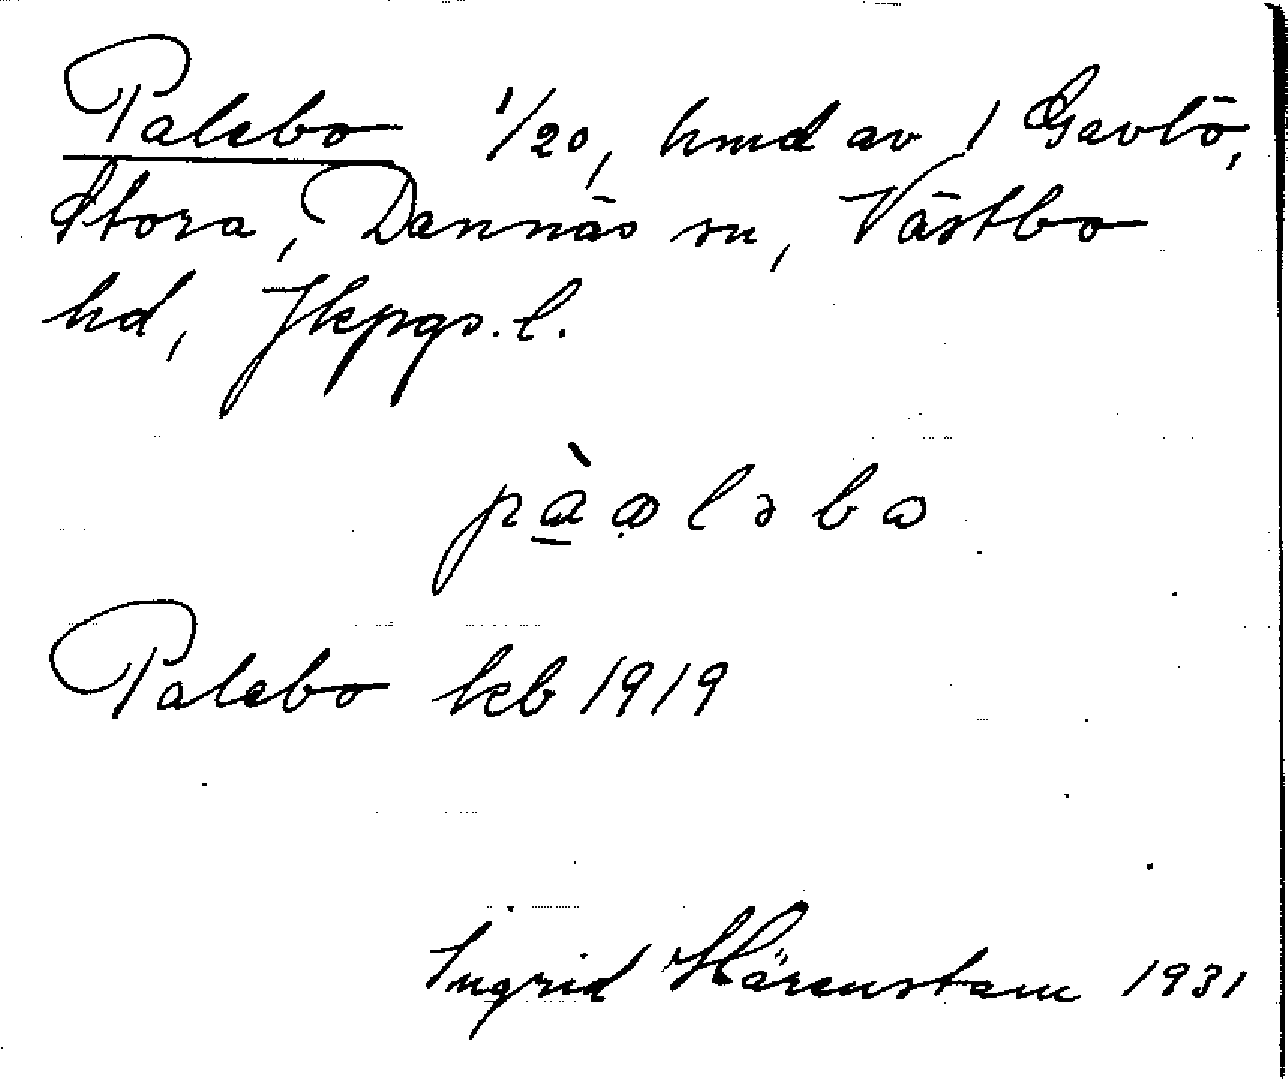 Palebo 1/20, hmd av 1 Gavlö,
Stora, Dannäs sn, Västbo
hd, Jkpgs. l.
pà̱ɑ̣ləbɷ
Palebo kb 1919
Ingrid Härenstam 1931